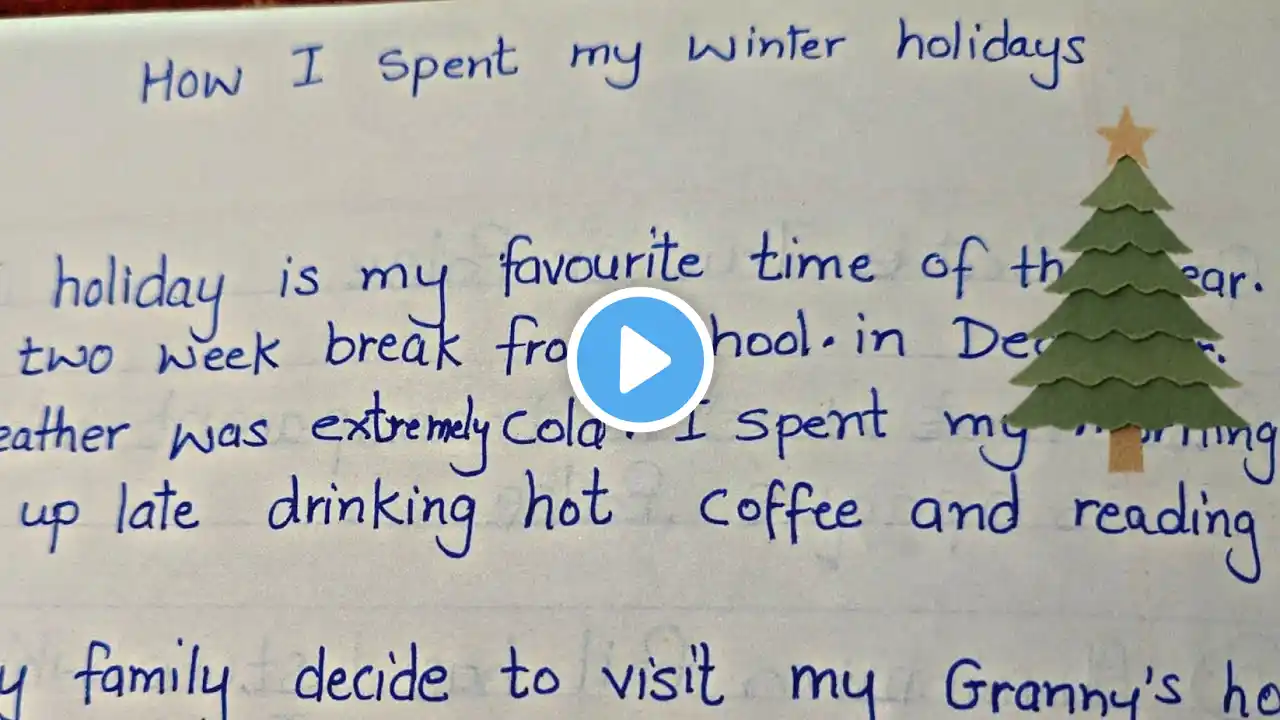 How I spent my winter holidays
holiday is my favourite time of
two week break in
was extremely cold. I spent my
up late drinking hot coffee and reading
family decide to visit my Granny's